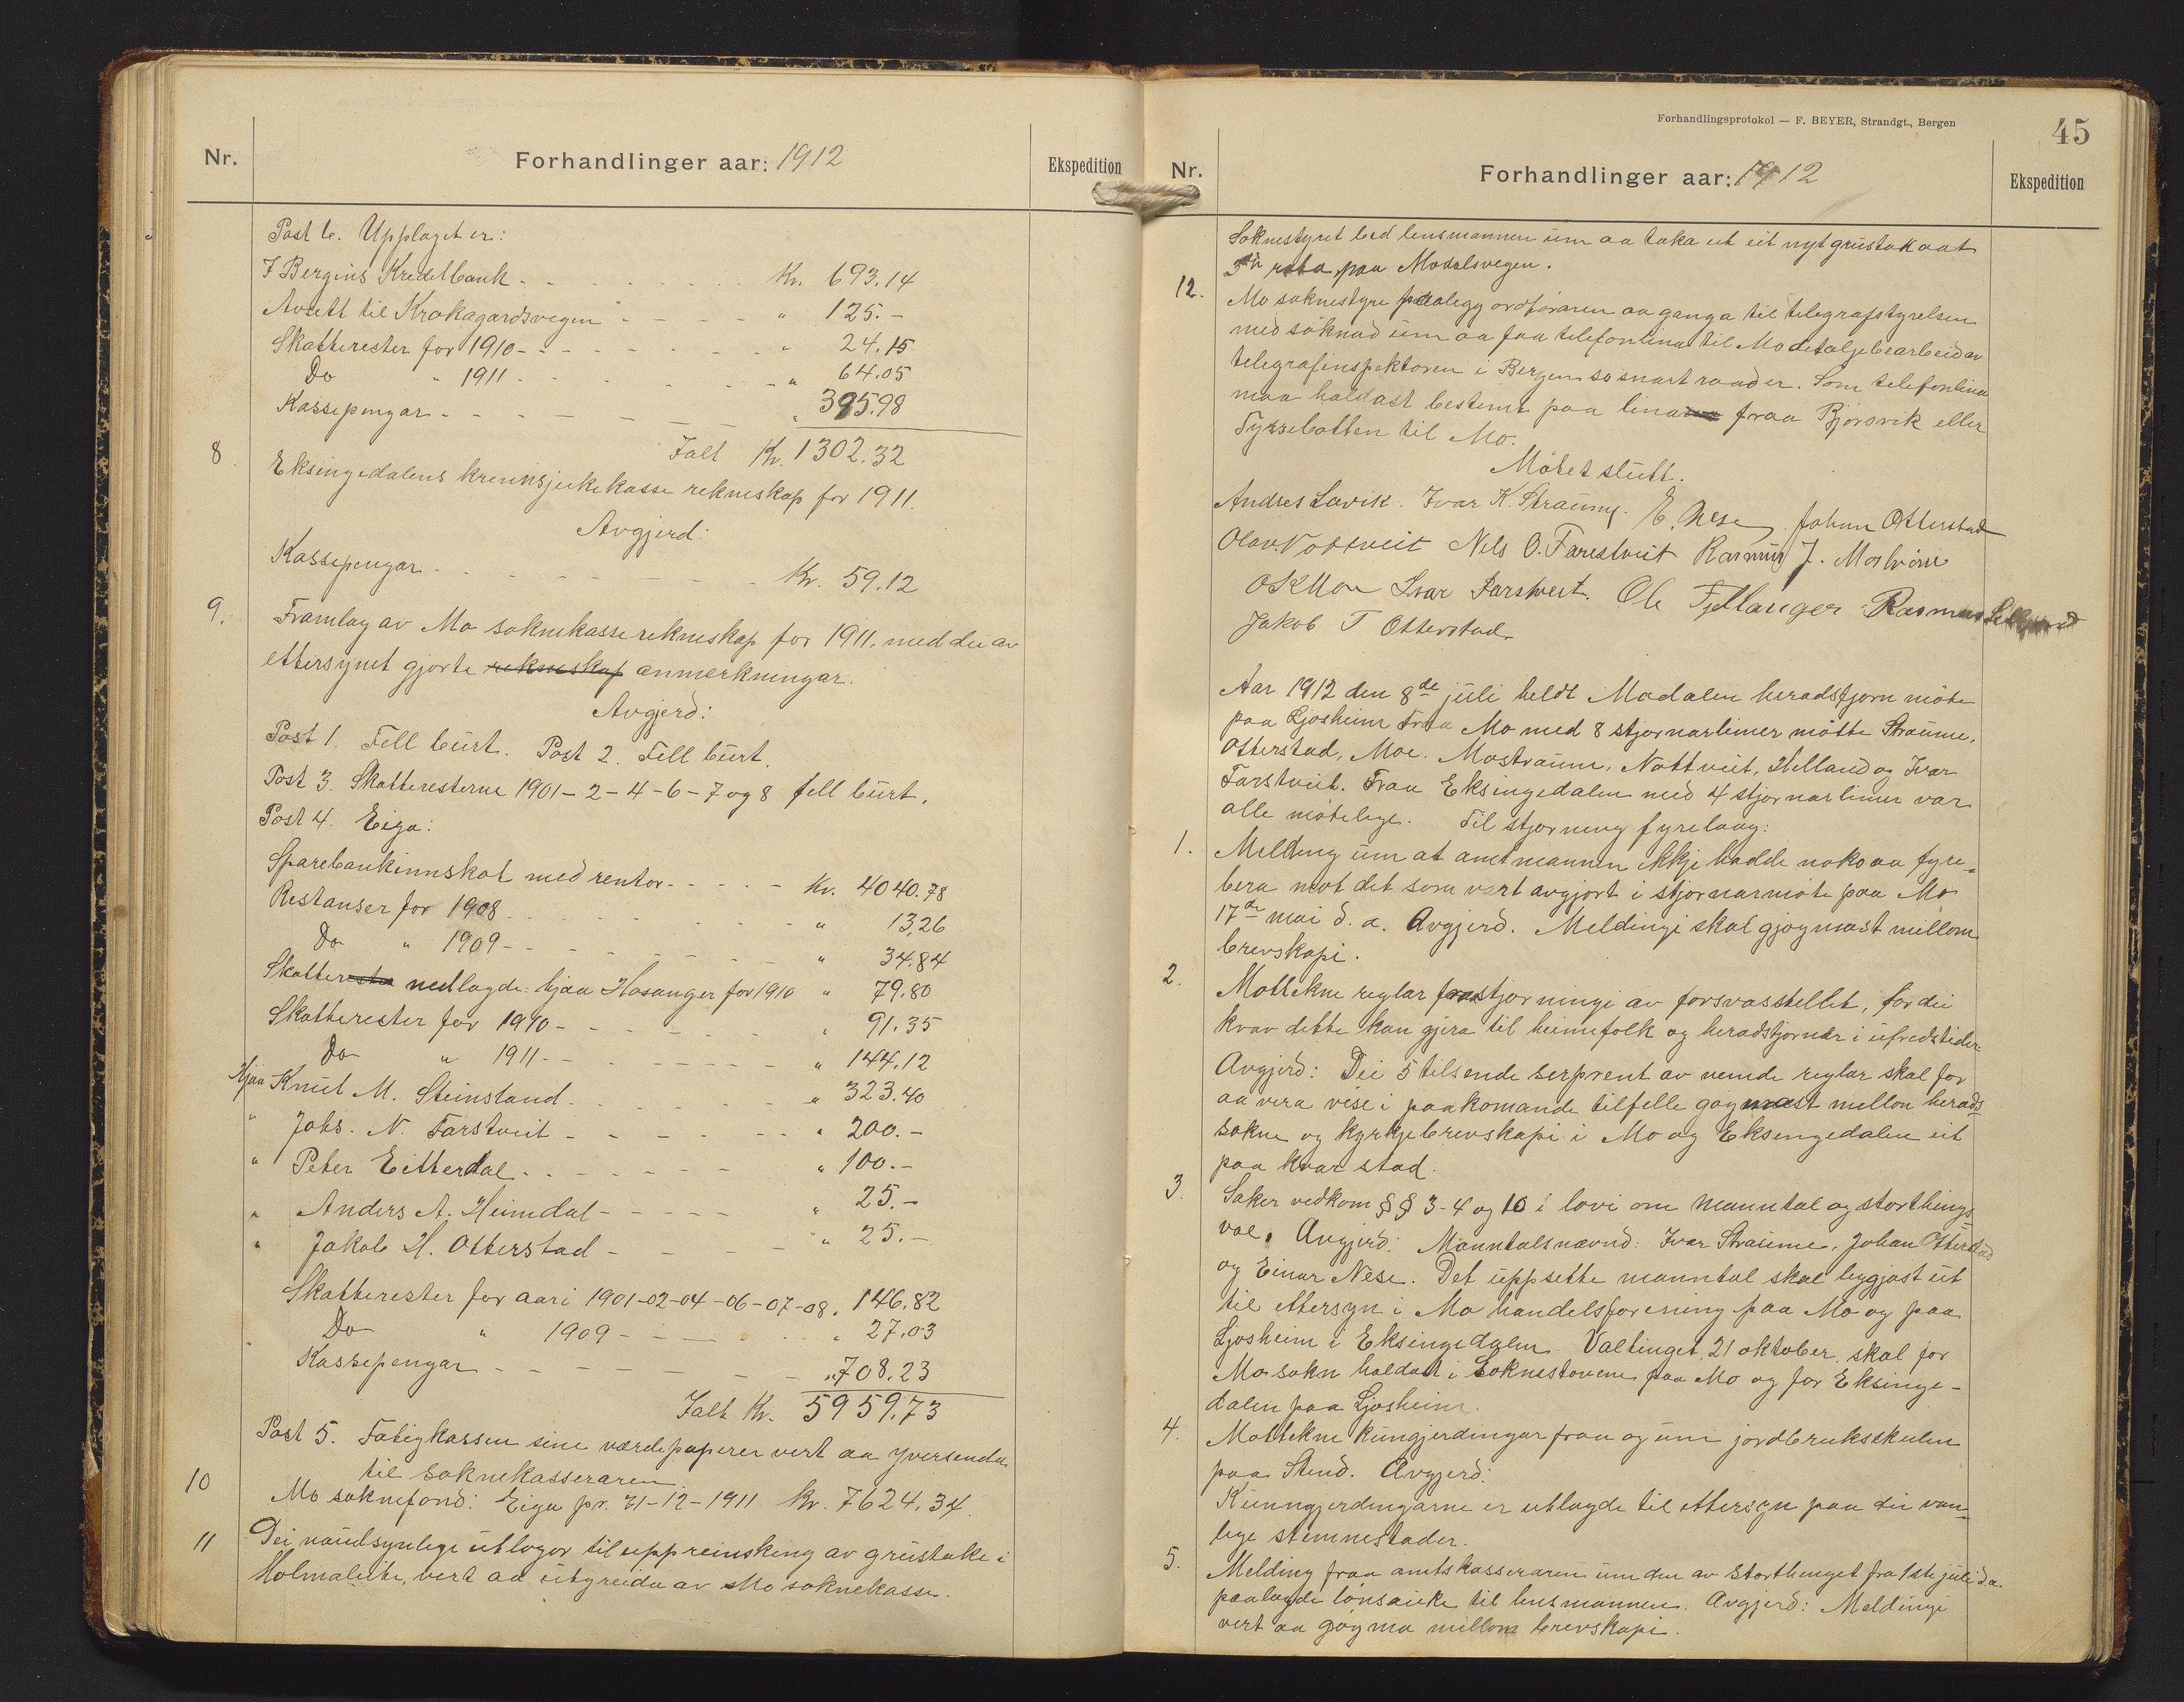 Nr.
Forhandlinger aar: 1912
Ekspedition
Post 6. Upplaget er:
I Bergens Kreditbank - - - - Kr. 693.14
Avsett til Krokagardsvegen - - - - " 125.-
Skatterester for 1910 - - - - " 24.15
Do " 1911 - - - - " 64.05
Kassepengar - - - - " 395.98
Ialt Kr. 1302.32
8. Eksingedalens krinsjukekasse rekneskap for 1911.
Avgjerd:
Kassepengar - - - - Kr. 59.12
9. Framlag av Mo soknekasserekneskap for 1911, med dei av
ettersynet gjorte rekneskap anmerkningar.
Avgjerd:
Post 1. Fell burt. Post 2. Fell burt.
Post 3. Skatteresterne 1901-2-4-6-7 og 8 fell burt.
Post 4. Eiga:
Sparebankinnskot med rentor - - - - Kr. 4040.78
Restanser for 1908 - - - - " 13,26
Do " 1909 - - - - " 34.84
Skatterester nedlagde hjaa Hosanger for 1910 " 79.80
Skatterester for 1910 - - - - " 91.35
Do " 1911 - - - - " 144.12
Hjaa Knut M. Steinsland - - - - " 323.40
" Johs. N. Farstveit - - - - " 200.-
" Peter Eitterdal - - - - " 100.-
" Anders A. Heimdal - - - - " 25.-
" Jakob H. Otterstad - - - - " 25.-
Skatterester for aari 1901-02-04-06-07-08. 146.82
Do " 1909 - - - - " 27.03
Kassepengar - - - - " 708.23
Ialt Kr. 5959.73
Post 5. Fatigkassen sine værdepaperer vert aa yversenda
til soknekasseraren.
10 Mo soknefond: Eiga pr. 31-12-1911 Kr. 7624.34.
11 Dei naudsynlege utlogor til uppreinsking av grustake i
Holmaleite, vert aa utgreida av Mo soknekasse.
Forhandlingsprotokol — F. BEYER, Strandgt., Bergen
45
Nr.
Forhandlinger aar: 1912
Ekspedition
Soknestyret bed lensmannen um aa taka ut eit nyt grustak aat
rota paa Modalsvegen.
12. Mo soknestyre paalegg ordføraren aa ganga til telegrafstyrelsen
med søknad um aa faa telefonlina til Mo detaljebearbeid av
telegrafinspektøren i Bergen so snart raad er. Som telefonlina
maa haldast bestemt paa lina fraa Bjørsvik eller
Tyssebotten til Mo.
Møtet slutt.
Andres Lavik. Ivar K. Straume. E. Nese. Johan Otterstad
Olav Nottveit Nels O. Farestveit Rasmus J. Mostraum
O K Moe Ivar Farstveit. Ole Fjellanger Rasmus
Jakob T Otterstad
Aar 1912 den 8de juli heldt Modalen heradstjorn møte
paa Ljosheim Fraa Mo med 8 stjornarlimer møtte Straume,
Otterstad, Moe, Mostraum, Nottveit, Helland og Ivar
Farstveit. Fraa Eksingedalen med 4 stjornarlimer var
alle møtelege. Til stjorning fyrelaag:
1. Melding um at amtmannen ikkje hadde noko aa fyre-
bera mot det som vart avgjort i stjornarmøte paa Mo
17de mai d. a. Avgjerd. Meldingi skal gjøymast millom
brevskapi.
2. Mottekne reglar fraa stjorningi av forsvarsstellet, for dei
krav dette kan gjera til heimefolk og heradstjornar i ufredstider
Avgjerd: Dei 5 tilsende serprent av nemde reglar skal for
aa vera vise i paakomande tilfelle gøymast mellom herads
sokne og kyrkjebrevskapi i Mo og Eksingedalen eit
paa kvar stad.
3. Saker vedkom §§ 3-4 og 10 i lovi om manntal og storthings
val. Avgjerd: Manntalsnævnd: Ivar Straume, Johan Otterstad
og Einar Nese. Det uppsette manntal skal leggjast ut
til ettersyn i Mo handelsforening paa Mo og paa
Ljosheim i Eksingedalen. Valtinget 21 oktober, skal for
Mo sokn haldast i Soknestovene paa Mo og for Eksinge-
dalen paa Ljosheim.
4. Mottekne kungjerdingar fraa og um jordbruksskulen
paa Stend. Avgjerd:
Kunngjerdingarne er utlagde til ettersyn paa dei van-
lege stemnestader.
5. Melding fraa amtskasseraren um den av Storthinget fra 1ste juli d.a.
paalagde lønsauke til lensmannen. Avgjerd: Meldingi
vert aa gøyma millom brevskapi.